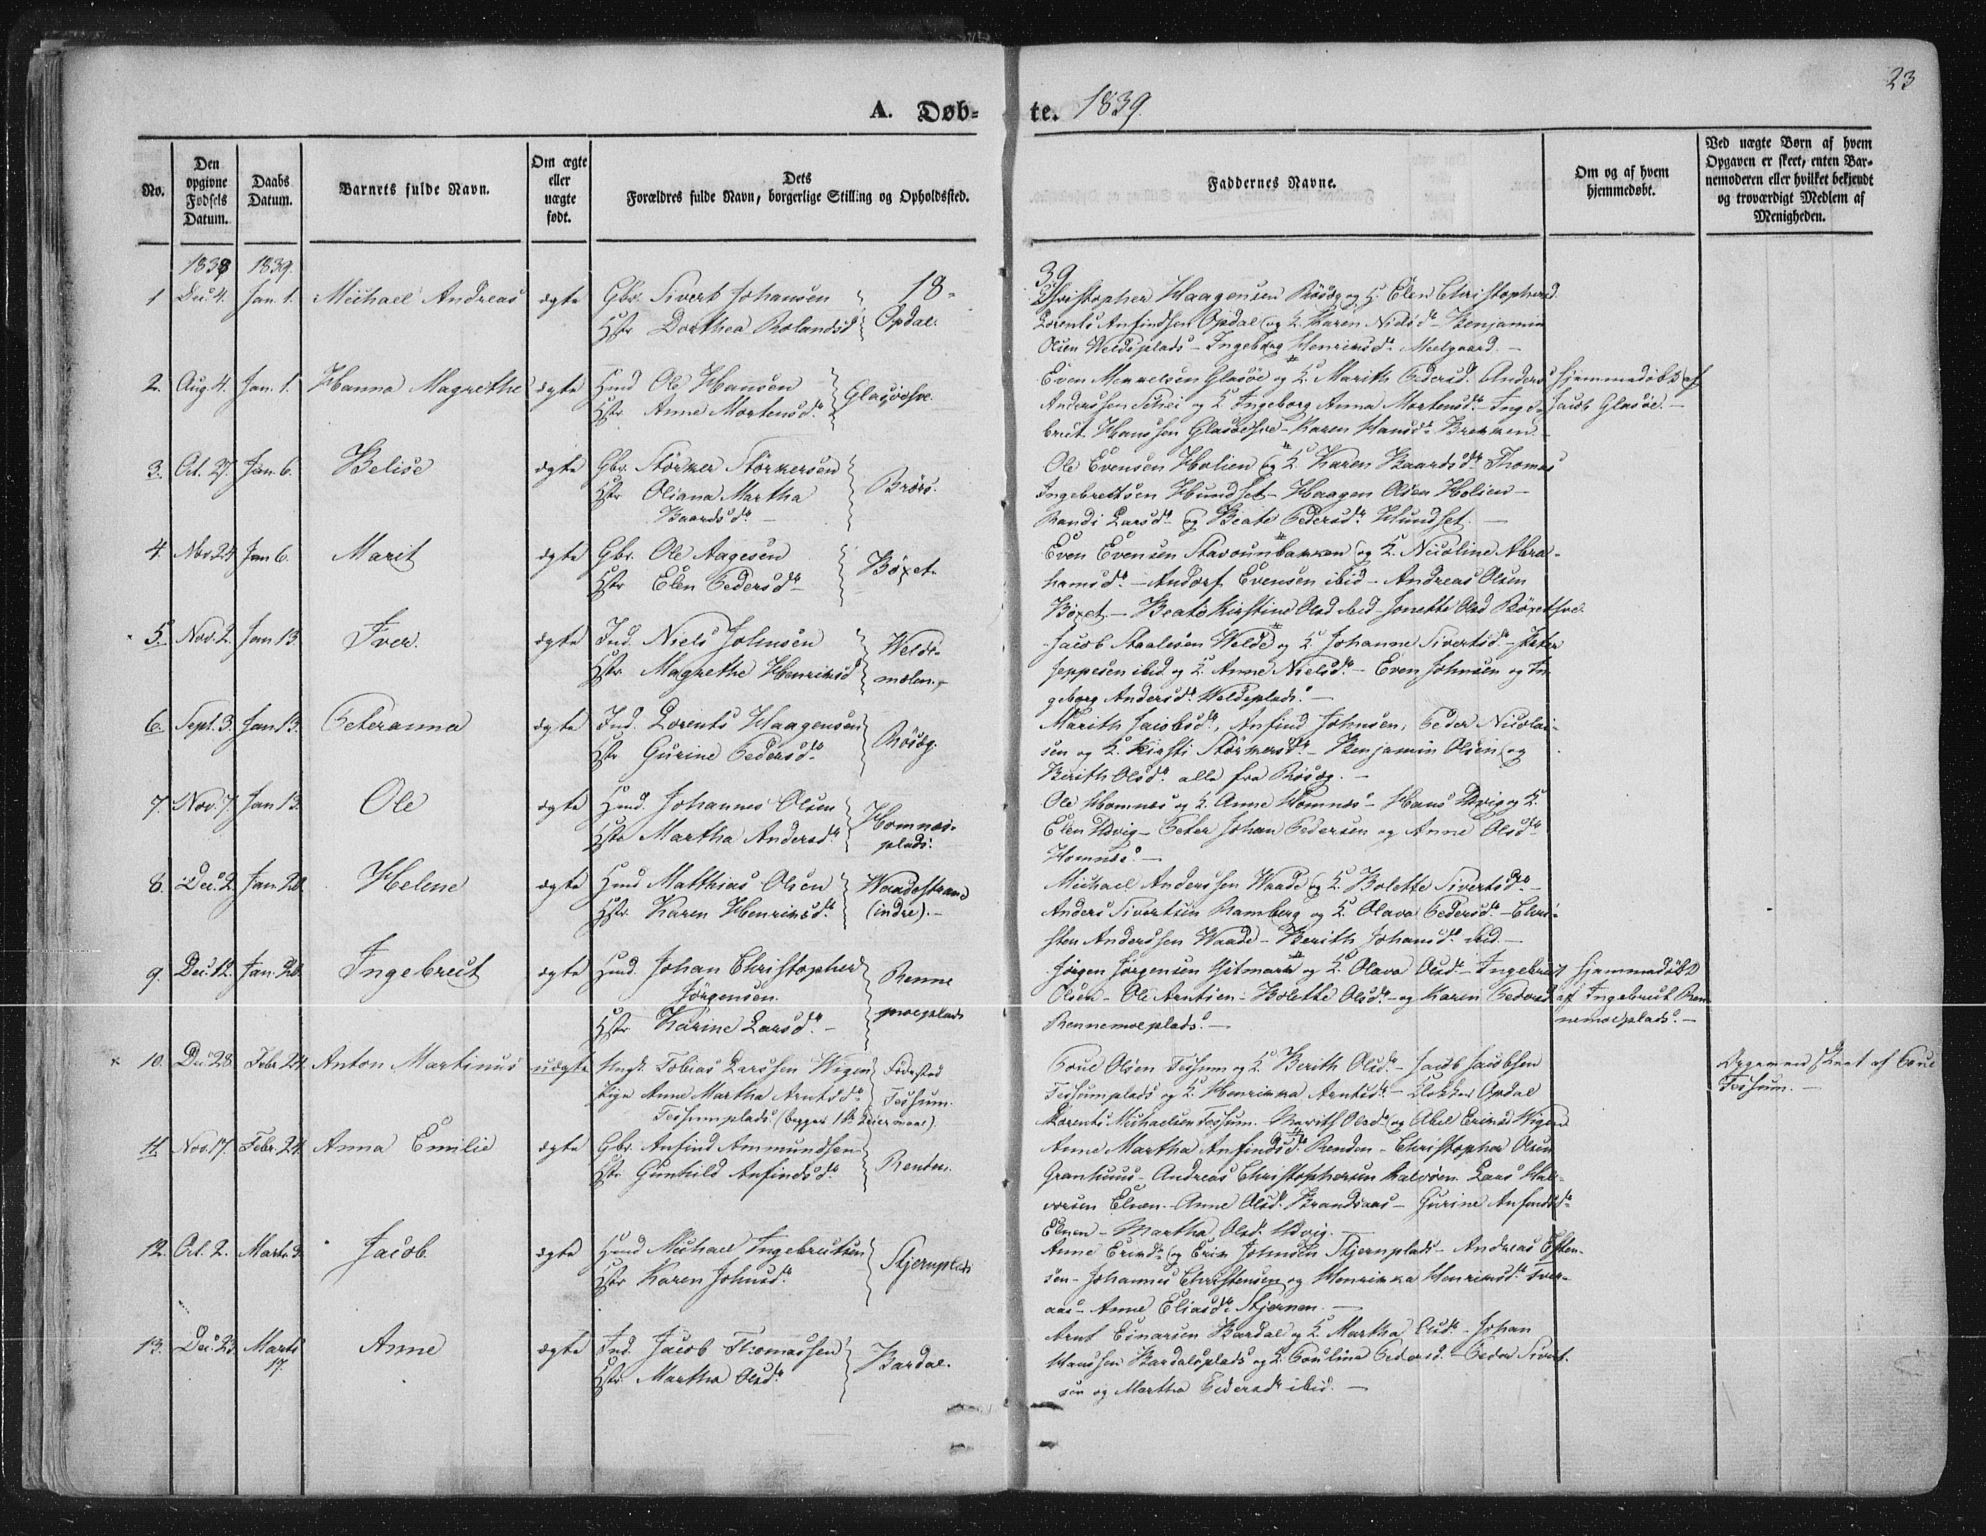 23
A. Døb-te. 1839.
No.
Den opgivne Fødsels Datum.
Daabs Datum.
Barnets fulde Navn.
Om ægte eller uægte født.
Dets Forældres fulde Navn, borgerlige Stilling og Opholdssted.
Faddernes Navne.
Om og af hvem hjemmedøbt.
Ved uægte Børn af hvem Opgaven er skeet, enten Barnemoderen eller hvilket bekjendt og troværdigt Medlem af Menigheden.
1838 1839.
18-39
1 Dec. 4. Jan. 1. Michael Andreas ægte Gbr. Sivert Johansen
Hstr Dorthea Rolandsd Opdal.
Christopher Haagensen Røsæg og K. Elen Christophersd
Lorents Anfindsen Opdal og K. Karen Nielsdr - Benjamin
Olsen Weldeplads - Ingeborg Henriksdr Melgaard. -
2. Aug. 4. Jan. 1. Hanna Magrethe ægte Hmd Ole Hansen
Hstr Anne Mortensdr Glasöesve
Even Mekkelsen Glasöe og K. Marith Pedersdr Anders
Anderssen Schei og K Ingeborg Anna Mortensdr - Inge-
bret Hanssen Glasöesve - Karen Hansdr Brekken
Hjemmedöbt af
Jacob Glasöe. -
3. Oct. 27. Jan. 6. Belise ægte Gbr. Störker Störkersen
Hstr Oliana Martha
Baardsdr - Brörs.
Ole Evensen Holien og K. Karen Baardsdr Thomas
Ingebretsen Hundset - Haagen Olsen Holien -
Randi Larsdr og Beate Pedersdr Hundset. -
4 Nov. 24 Jan 6. Marit ægte Gbr. Ole Aagesen
Hstr Elen Pedersdr Böxet
Even Evensen Stavrunbakken og K. Nicoline Abra-
hamsdr - Andorf Evensen ibid - Andreas Olsen
Böxet - Beate Kirstine Olsd ibid - Jonette Olsd Böxetsve.
5. Nov. 2. Jan 13. Iver. ægte Ind. Niels Johnsen
Hstr Magrethe Henriksd Welde-
molen.
Jacob Staalesen Welde og K Johanne Sivertsdr - Peter
Jeppesen ibid og K Anne Nielsdr - Even Johnsen og In-
geborg Andersdr Weldeplads. -
6. Sept. 3. Jan 13. Peteranna ægte Ind. Lorents Haagensen
Hstr Gurine Pedersdr Rösæg.
Marith Jacobsdr, Anfind Johnsen, Peder Nicolai-
sen og K. Kirsti Störkersdr - Benjamin Olsen og
Berith Olsdr alle fra Rösæg. -
7. Nov. 7. Jan 13. Ole ægte Hmd. Johannes Olsen
Hstr Martha Andersdr Homnes-
plads.
Ole Homnes og K. Anne Homnes - Hans Udvig og K.
Elen Udvig - Peter Johan Pedersen og Anne Olsdr
Homnes. -
8. Dec. 2. Jan. 20. Helene ægte Hmd Matthias Olsen
Hstr. Karen Henriksdr Waadestrand
(indre). -
Michael Anderssen Waade og K. Bolette Sivertsdr -
Anders Sivertsen Ramberg og K. Olava Pedersdr - Chri-
sten Anderssen Waade - Berith Johansdr ibid. -
9. Dec. 12. Jan. 20. Ingebreut ægte Hmd. Johan Christopher
Jörgensen.
Hstr Karine Larsdr. - Renne
moeplads
Jörgen Jörgensen Hitmark og K. Olava Olsdr - Ingebret
Olsen - Ole Arntsen - Bolette Olsdr - og Karen Pedersd
Rennemoeplads. -
Hjemmedöbt
af Ingebreut Ren
nemoeplads. -
10. Dec. 28 Febr 24. Anton Martinus uægte Ungk. Tobias Larssen Wigen
Pige Anne Martha Arntsdr
Tessumplads (begges 1ste Leiermaal) Födested
Tessum.
Poul Olsen Tessum og K. Berith Olsdr - Jacob Jacobsen
Tessumplads og K. Henrikka Arntsdr - Klokker Opdal
Lorents Michaelsen Tessum. - Marith Olsdr og Abel Eriksd Wigen
Opgaven skeet af Poul
Tessum. -
11. Nov. 17. Febr. 24. Anna Emilie ægte Gbr. Anfind Ammundsen
Hstr Gunhild Anfindsdr Renden.
Anne Martha Anfindsdr Renden - Christopher Olsen
Granhuus - Andreas Christophersen Halvöen Lars Hal-
vorsen Elnen - Anne Olsd. Brandsaas - Gurine Anfindsdr
Elnen - Martha Olsd. Udvig. -
12. Oct. 2. Marts 3. Jacob ægte Hmd Michael Ingebretsen
Hstr Karen Johnsdr Stjernplads
Anne Eriksdr og Erik Johnsen Stjernplads - Andreas Esten-
sen - Johannes Christensen og Henrikka Henriksdr Tver-
aas - Anne Eliasdr Stjernen. -
13. Dec. 23. Marts 17. Anne ægte Ind. Jacob Thomassen
Hstr Martha Olsdr Bardal.
Arnt Einarsen Bardal og K. Martha Olsdr - Johan
Hanssen Bardalsplads og K. Pauline Pedersd. - Peder Sivert-
sen og Martha Pedersdr ibid. -